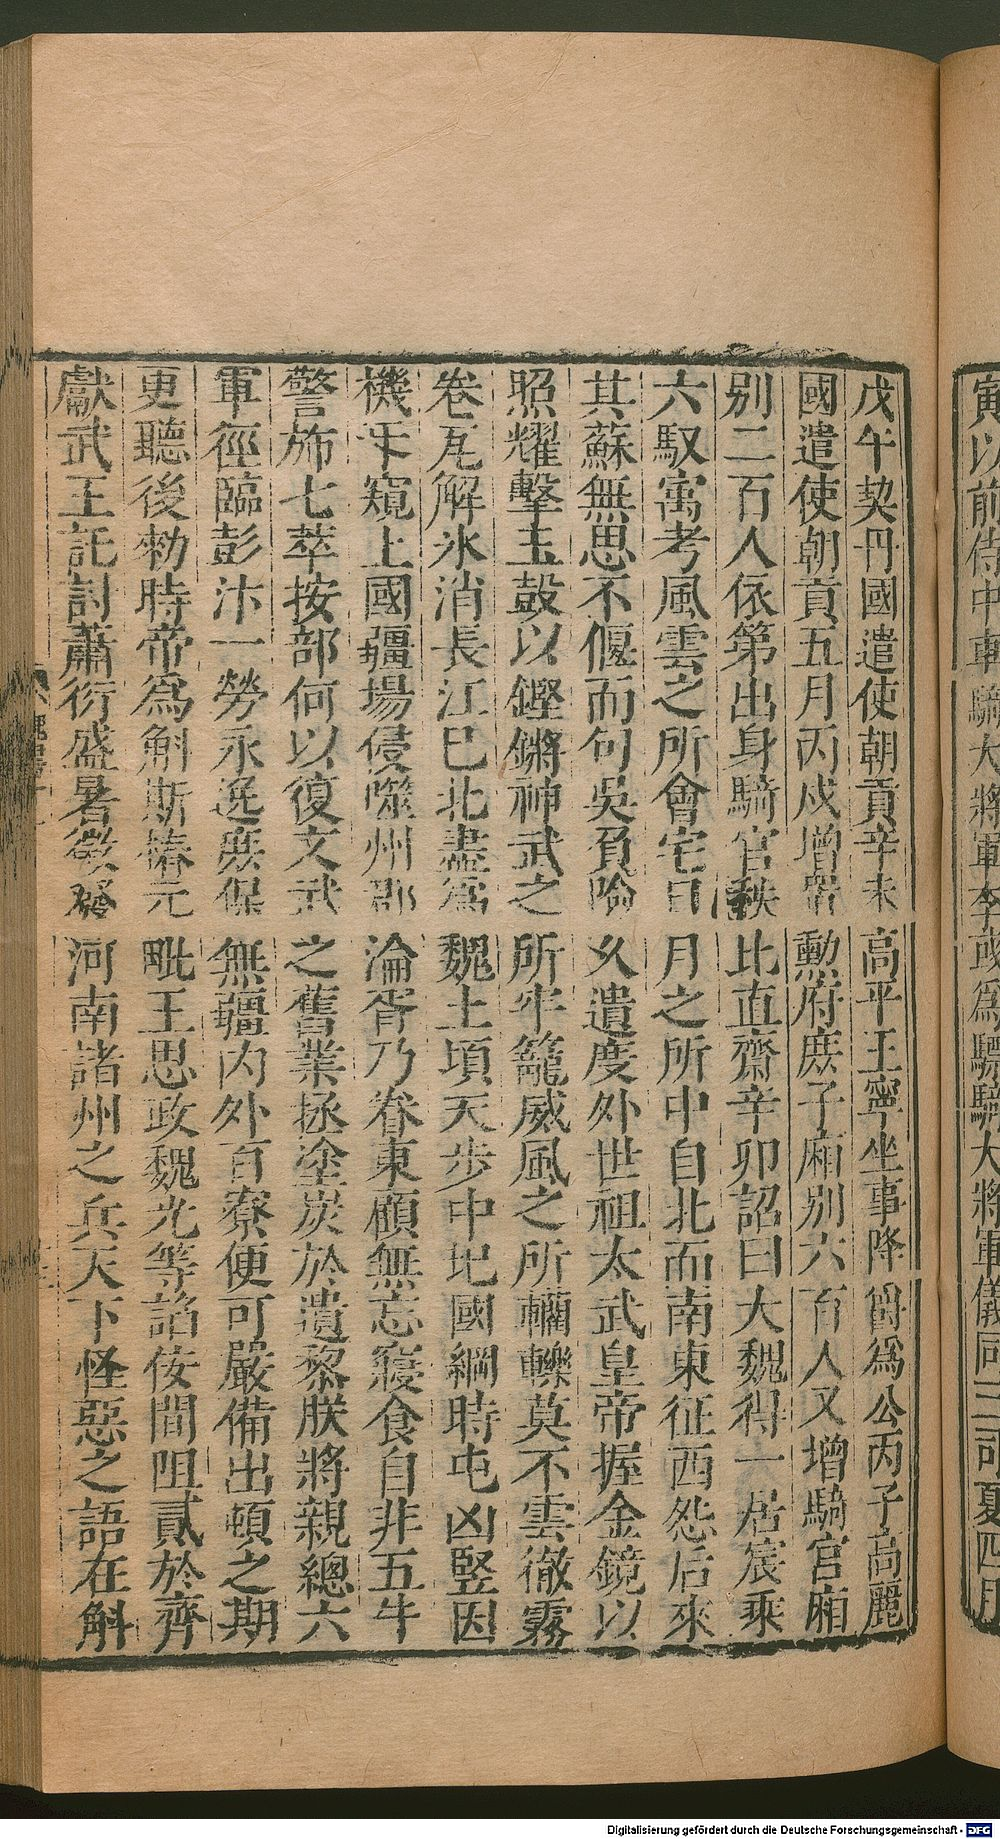 寅以前侍中車騎大將軍李彧爲驃騎大將軍儀同三司夏四月
戊午契丹國遣使朝貢辛未高平王寧坐事降爵爲公丙子高麗
國遣使朝貢五月丙戌增置勲府庶子廂別六百人又增騎官廂
別二百人依第出身騎官秩比直齋辛卯詔曰大魏得一居宸乘
六馭寓考風雲之所會宅日月之所中自北而南東征西怨后來
其蘇無思不偃而句吳負險久遺度外世祖太武皇帝握金鏡以
照耀擊玉鼓以鏗鏘神武之所牢籠威風之所轥轢莫不雲徹霧
卷瓦解氷消長江巳北盡爲魏土頃天步中圮國綱時屯凶豎因
機乎窺上國疆場侵噬州郡淪胥乃眷東顧無忘寢食自非五牛
警斾七萃按部何以復文武之舊業拯塗炭於遺黎朕將親總六
軍徑臨彭汴一勞永逸庶保無疆內外百寮便可嚴備出頓之期
更聽後勑時帝爲斛斯椿元毗王思政魏光等諂佞間阻貳於齊
獻武王託討蕭衍盛暑徵發河南諸州之兵天下怪惡之語在斛
Digitalisierung gefördert durch die Deutsche Forschungsgemeinschaft - DFG